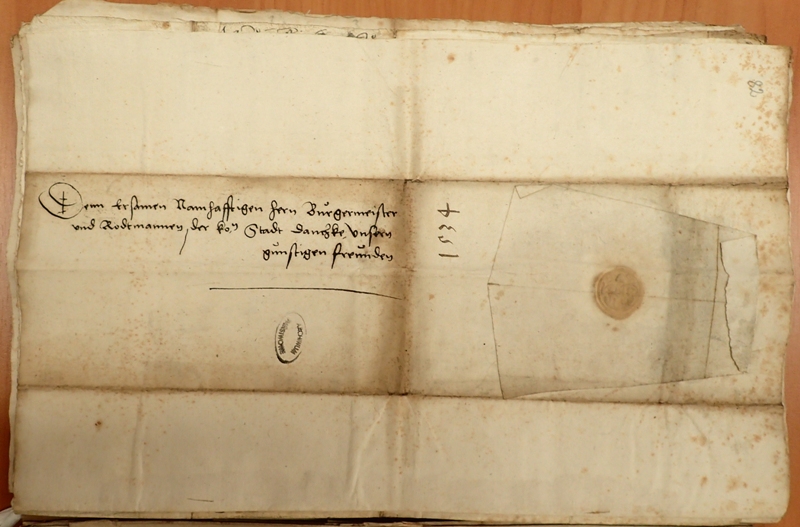 Denn Ersamen Namhafftigen hern Burgermeister
vnd Rodtmannen, der ko:n Stadt dantzke, vnsern
gunstigen freunden
1534
82